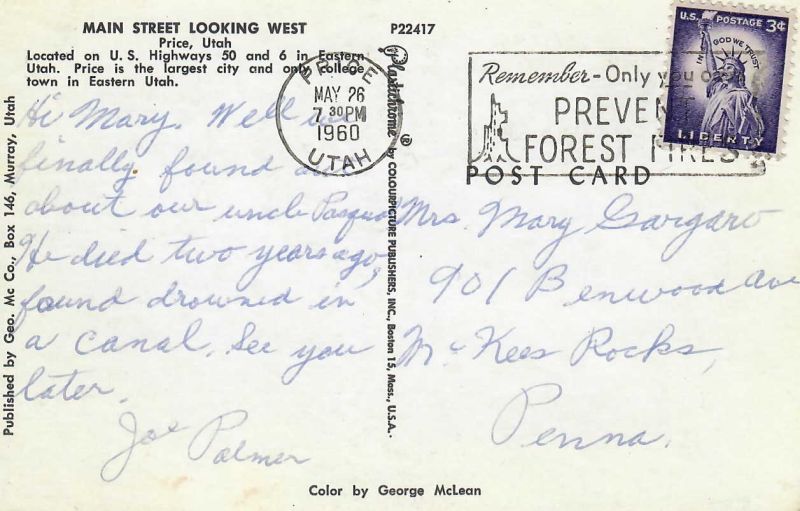 MAIN STREET LOOKING WEST
Price, Utah
Located on U. S. Highways 50 and 6 in Eastern
Utah. Price is the largest city and only college
town in Eastern Utah.
P22417
PRICE
MAY 26
7 30 PM
1960
UTAH
Remember - Only you can
PREVENT
FOREST FIRES
U.S. POSTAGE 3¢
IN GOD WE TRUST
LIBERTY
POST CARD
Hi Mary. Well we
finally found out
about our uncle Pasqual
He died two years ago,
found drowned in
a canal. See you
later.
Joe Palmer
Mrs. Mary Gargaro
901 Benwood Ave
McKees Rocks,
Penna.
Published by Geo. Mc Co., Box 146, Murray, Utah
Plastichrome ® by COLOURPICTURE PUBLISHERS, INC., Boston 15, Mass., U.S.A.
Color by George McLean